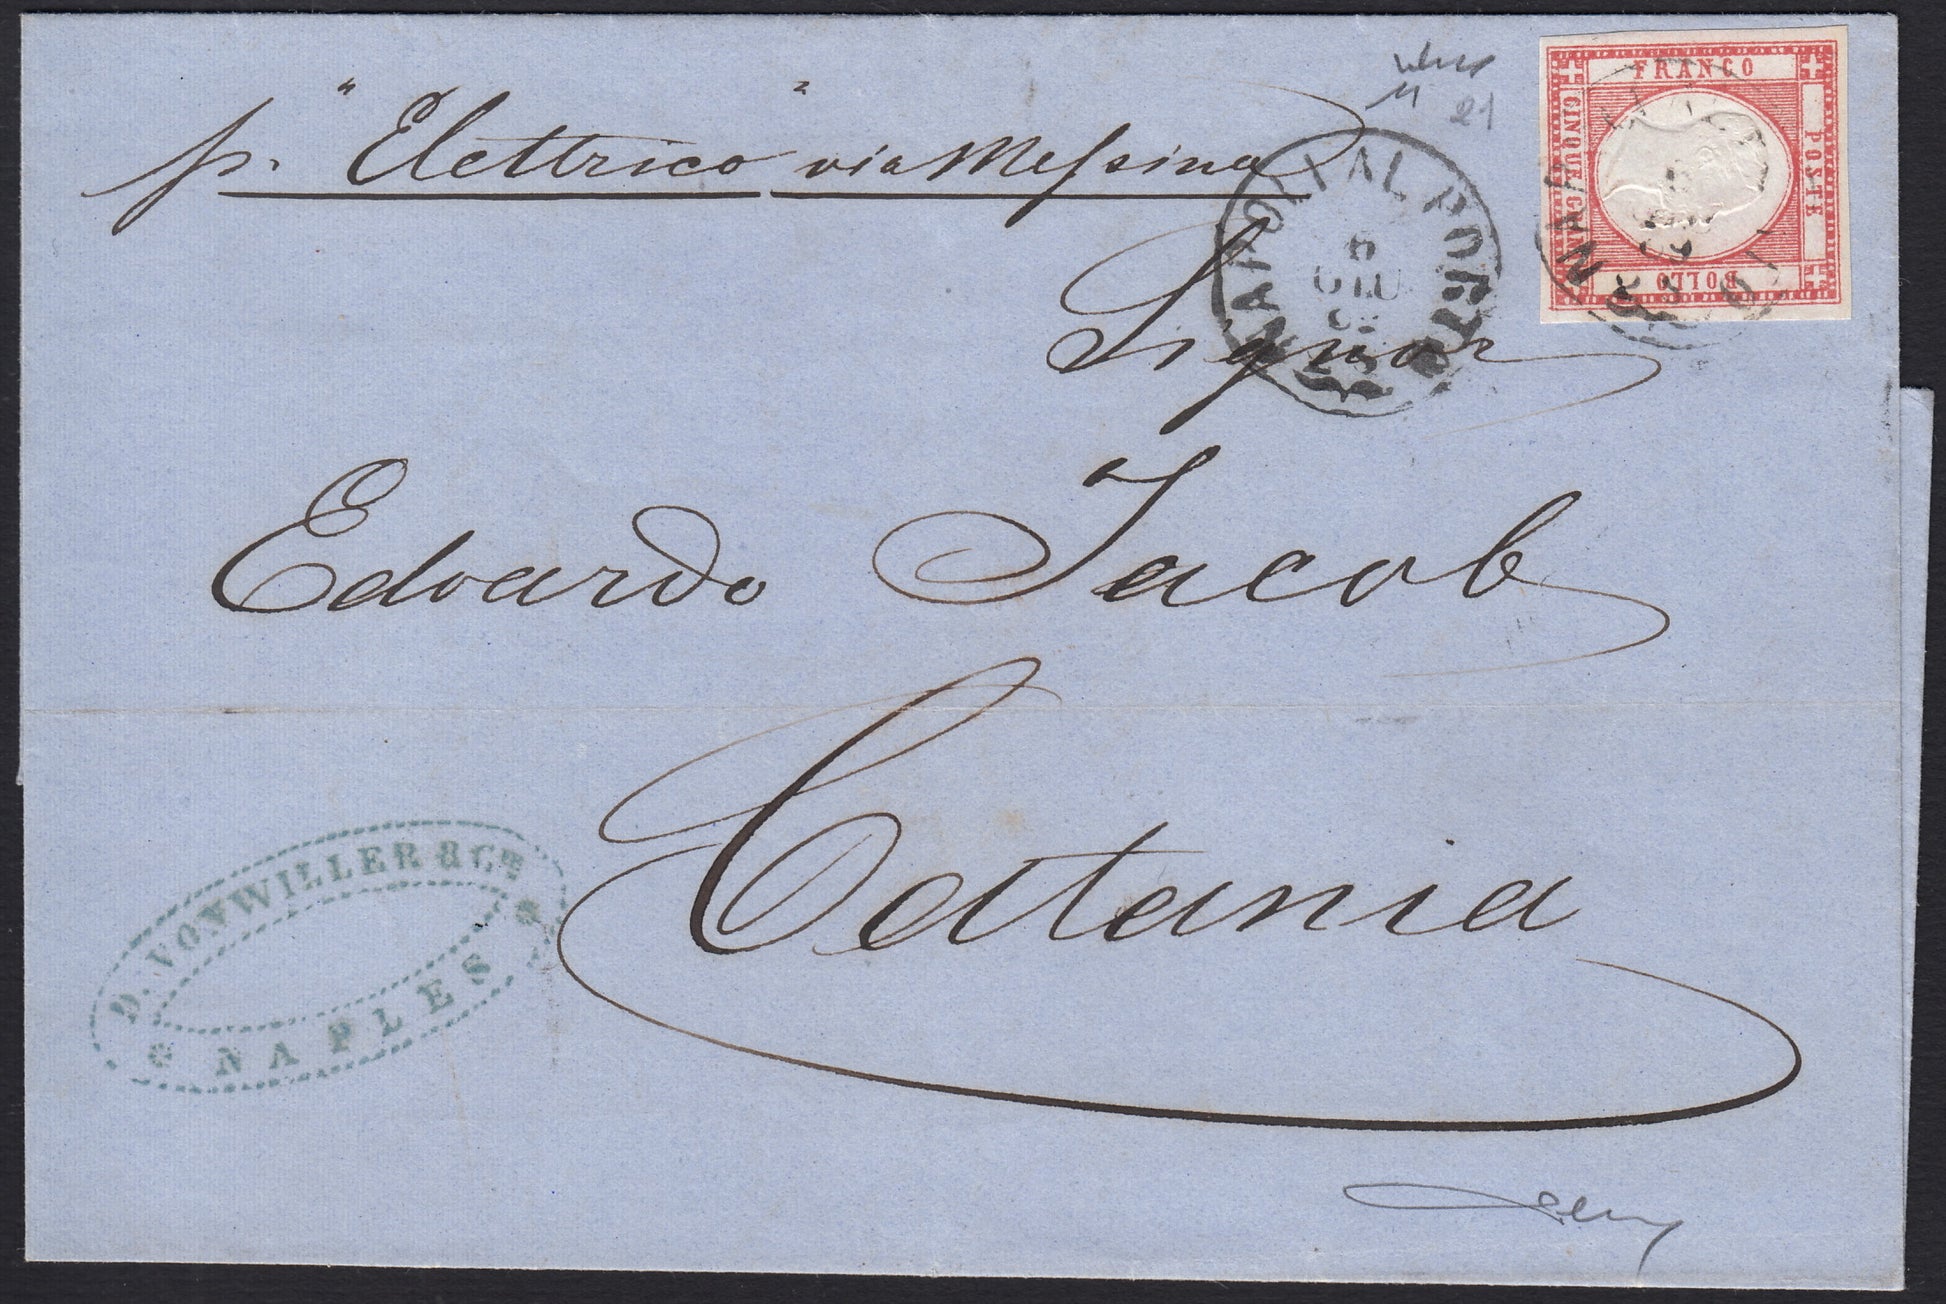 p. "Elettrico" via Messina
21
FRANCO
POSTE
CINQUE
BOLLO
NAPOLI AL PORTO
GIU
62
Signor
Edoardo Jacob
Catania
D. VONWILLER & Cie
NAPLES